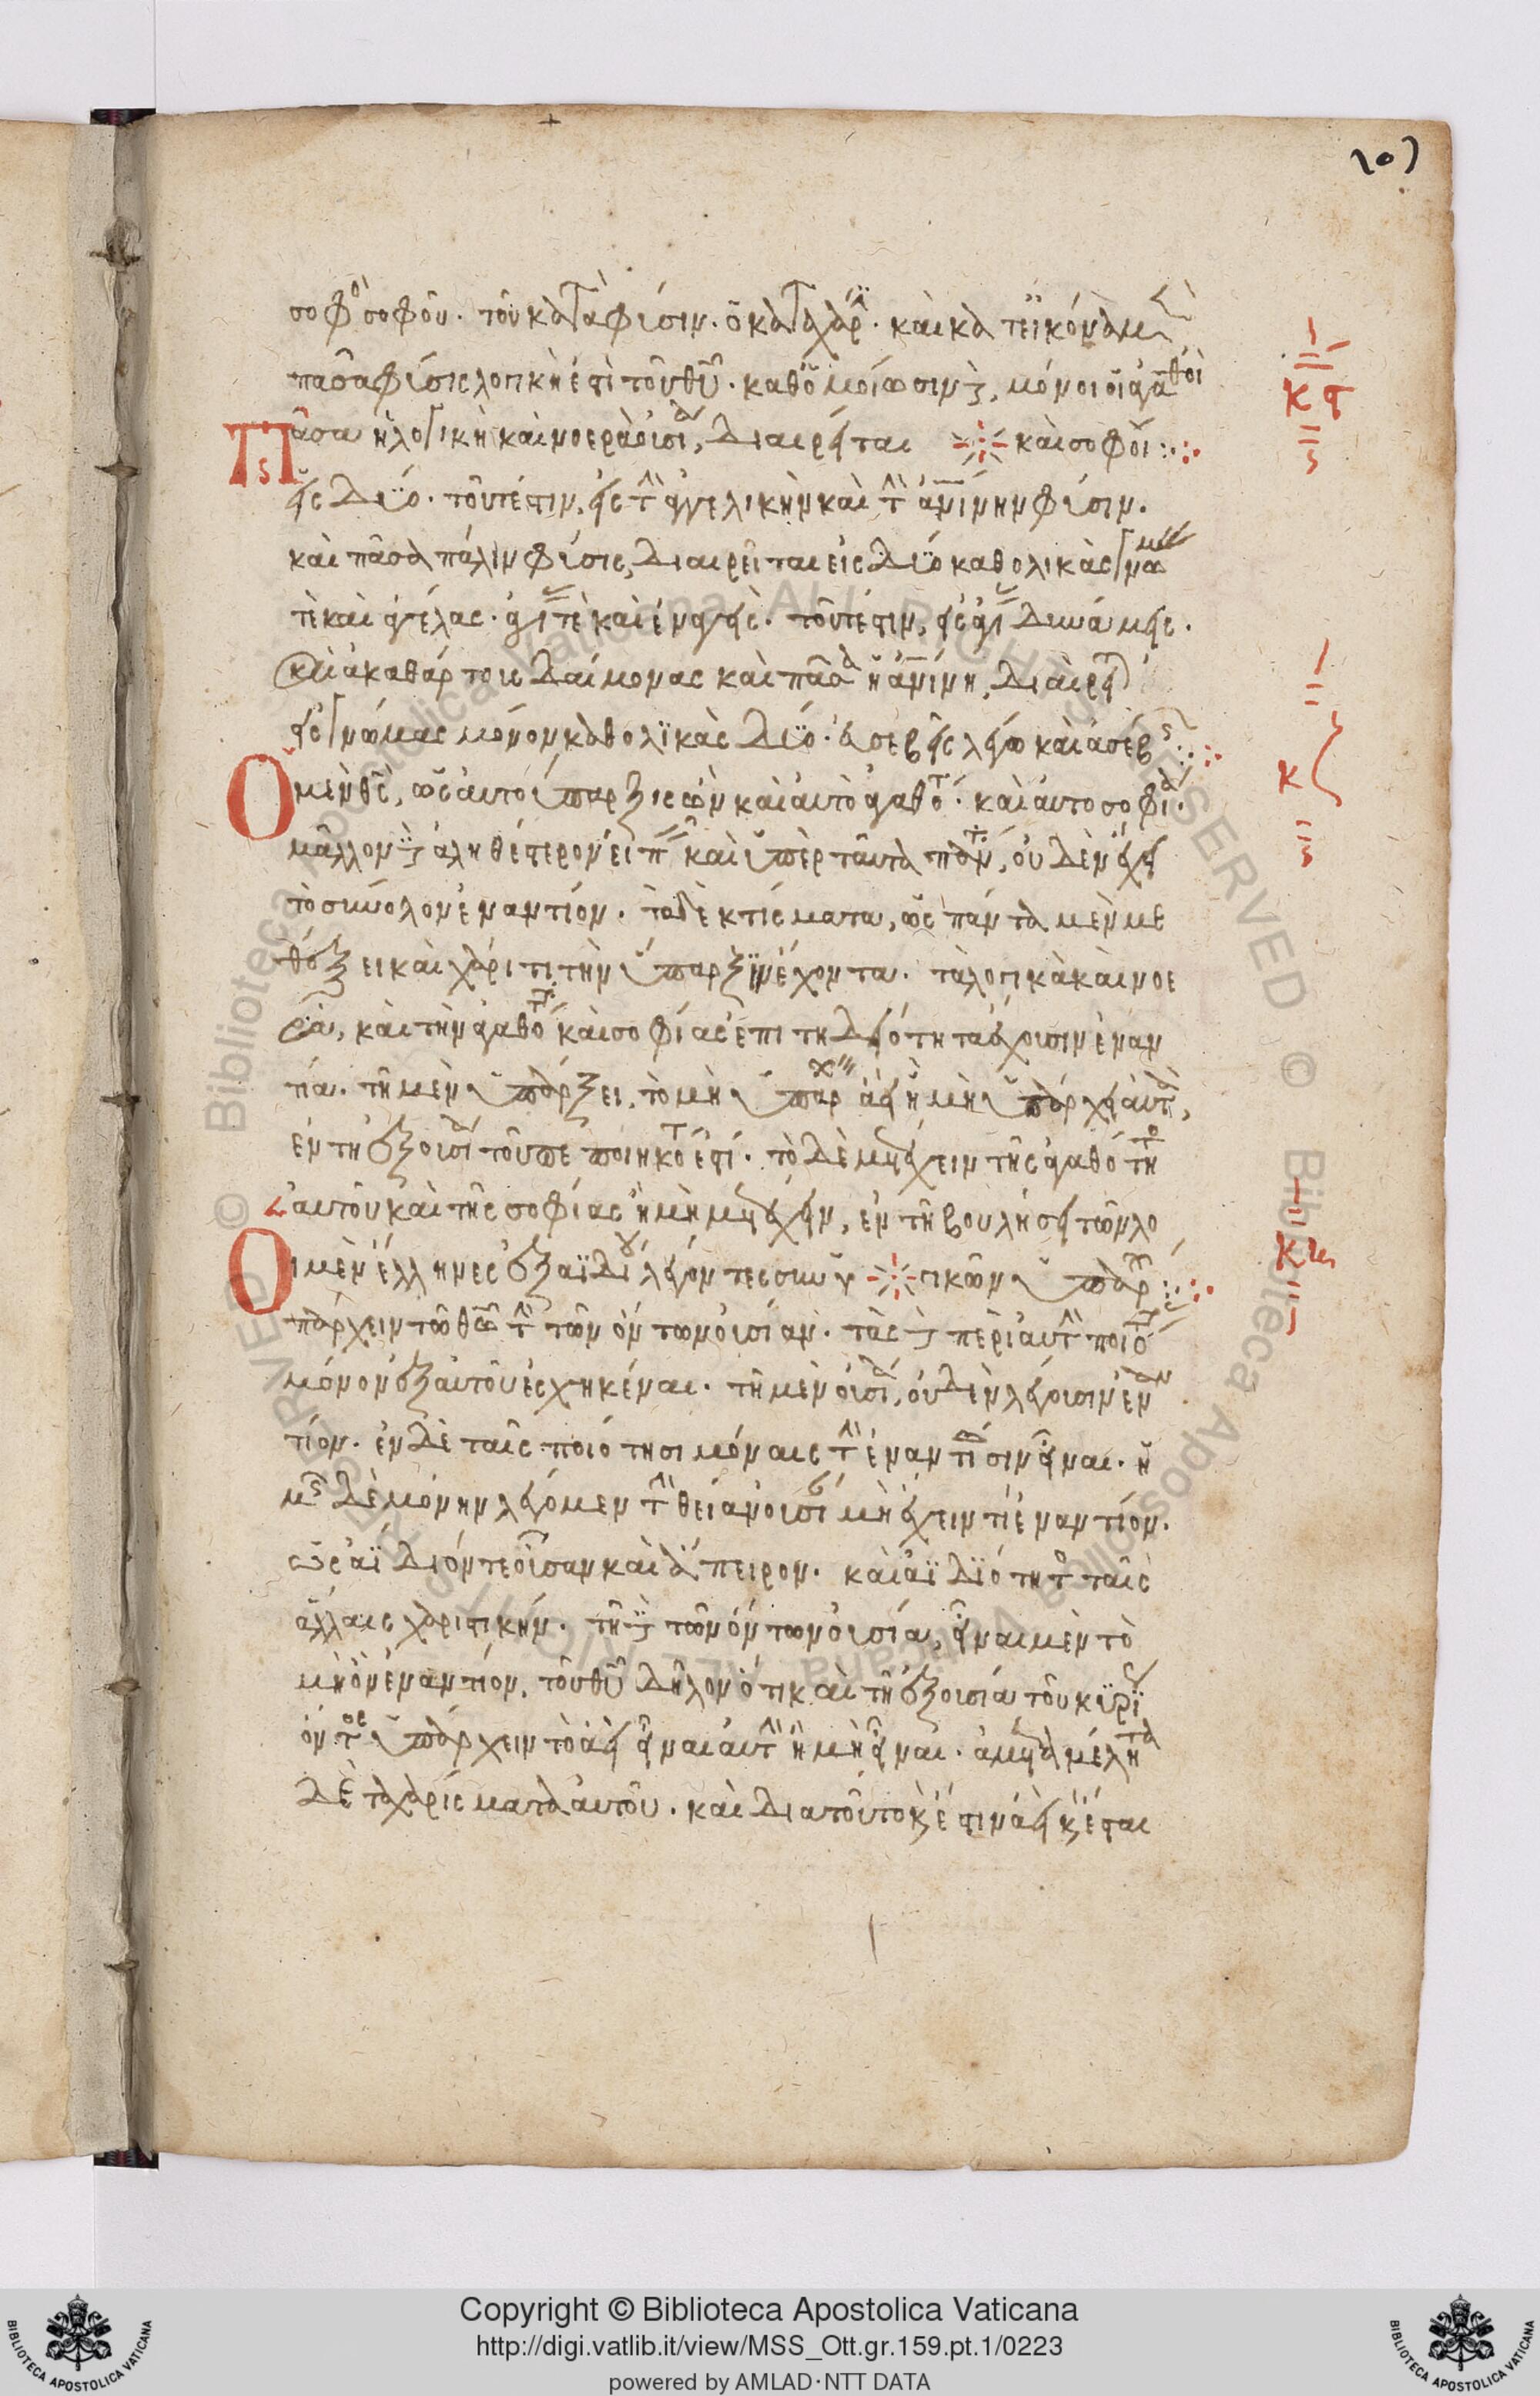 107
σοφὸς σοφοῦ. τοῦ κατὰ φύσιν. ὁ κατὰ χάριν. καὶ κατ' εἰκόνα μὲν
πᾶσα φύσις λογικὴ ἐστὶ τοῦ θῦ. καθ' ὁμοίωσιν δὲ, μόνοι οἱ ἀγαθοὶ
Πᾶσα ἡ λογικὴ καὶ νοερὰ οὐσία, διαιρεῖται καὶ σοφοί:
κϛ
εἰς δύο. τοῦτέστιν, εἰς τὴν ἀγγελικὴν καὶ τὴν ἀνίνην φύσιν.
καὶ πᾶσα πάλιν φύσις, διαιρεῖται εἰς δύο καθολικὰς γνώμας
τὲ καὶ ἀγέλας. ἁγίας τὲ καὶ ἐναγεῖς. τοῦτέστιν, εἰς ἁγίας δυνάμεις.
καὶ ἀκαθάρτους δαίμονας καὶ πᾶσα ἡ ἀνίνη, διαιρεῖται
εἰς γνώμας μόνον καθολικὰς δύο. εὐσεβεῖς λέγω καὶ ἀσεβεῖς:
Ὁ μὲν θς, ὡς αὐτοΰπαρξις ὢν καὶ αὐτοαγαθότης. καὶ αὐτοσοφία.
κζ
μᾶλλον δὲ ἀληθέστερον εἰπεῖν καὶ ὑπὲρ ταῦτα πάντα, οὐδὲν ἔχει
τὸ σύνολον ἐναντίον. τὰ δὲ κτίσματα, ὡς πάντα μὲν με
θέξει καὶ χάριτι τὴν ὕπαρξιν ἔχοντα. τὰ λογικὰ καὶ νοε
ρὰ, καὶ τὴν ἀγαθότητος καὶ σοφίας ἐπιτηδειότητα ἔχουσιν ἐναν
τία. τῆ μὲν ὑπάρξει, τὸ μὴ ὑπάρχειν ἀεὶ ἢ μὴ ὑπάρχειν αὐτὰ,
ἐν τῆ ἐξουσία τοῦ πεποιηκότος ἐστί. τὸ δὲ μετέχειν τῆς ἀγαθότητος
αὐτοῦ καὶ τῆς σοφίας ἢ μὴ μετέχειν, ἐν τῆ βουλήσει τῶν λο
Οἱ μὲν ἕλληνες ἐξ ἀϊδίου λέγοντες συνυ γικῶν ὑπάρχει:
κη
πάρχειν τῶ θῶ τὴν τῶν ὄντων οὐσίαν. τὰς δὲ περὶ αὐτὴν ποιότητας
μόνον ἐξ αὐτοῦ ἐσχηκέναι. τῆ μὲν οὐσία, οὐδὲν λέγουσιν ἐναν
τίον. ἐν δὲ ταῖς ποιότησι μόναις τὴν ἐναντίωσιν εἶναι. ἡ
μεῖς δὲ μόνην λέγομεν τὴν θείαν οὐσίαν μὴ ἔχειν τὶ ἐναντίον.
ὡς ἀΐδιόν τε οὖσαν καὶ ἄπειρον. καὶ ἀϊδιότητος ταῖς
ἄλλαις χαριστικήν. τῆ δὲ τῶν ὄντων οὐσία, εἶναι μὲν τὸ
μὴ ὂν ἐναντίον, τοῦ θῦ δηλονότι καὶ τῆ ἐξουσία τοῦ κυρίως
ὄντος ὑπάρχειν τὸ ἀεὶ εἶναι αὐτὴν ἢ μὴ εἶναι. ἀμεταμέλητα
δὲ τὰ χαρίσματα αὐτοῦ. καὶ διατοῦτο καὶ ἔστιν ἀεὶ καὶ ἔσται
Copyright © Biblioteca Apostolica Vaticana
http://digi.vatlib.it/view/MSS_Ott.gr.159.pt.1/0223
powered by AMLAD·NTT DATA